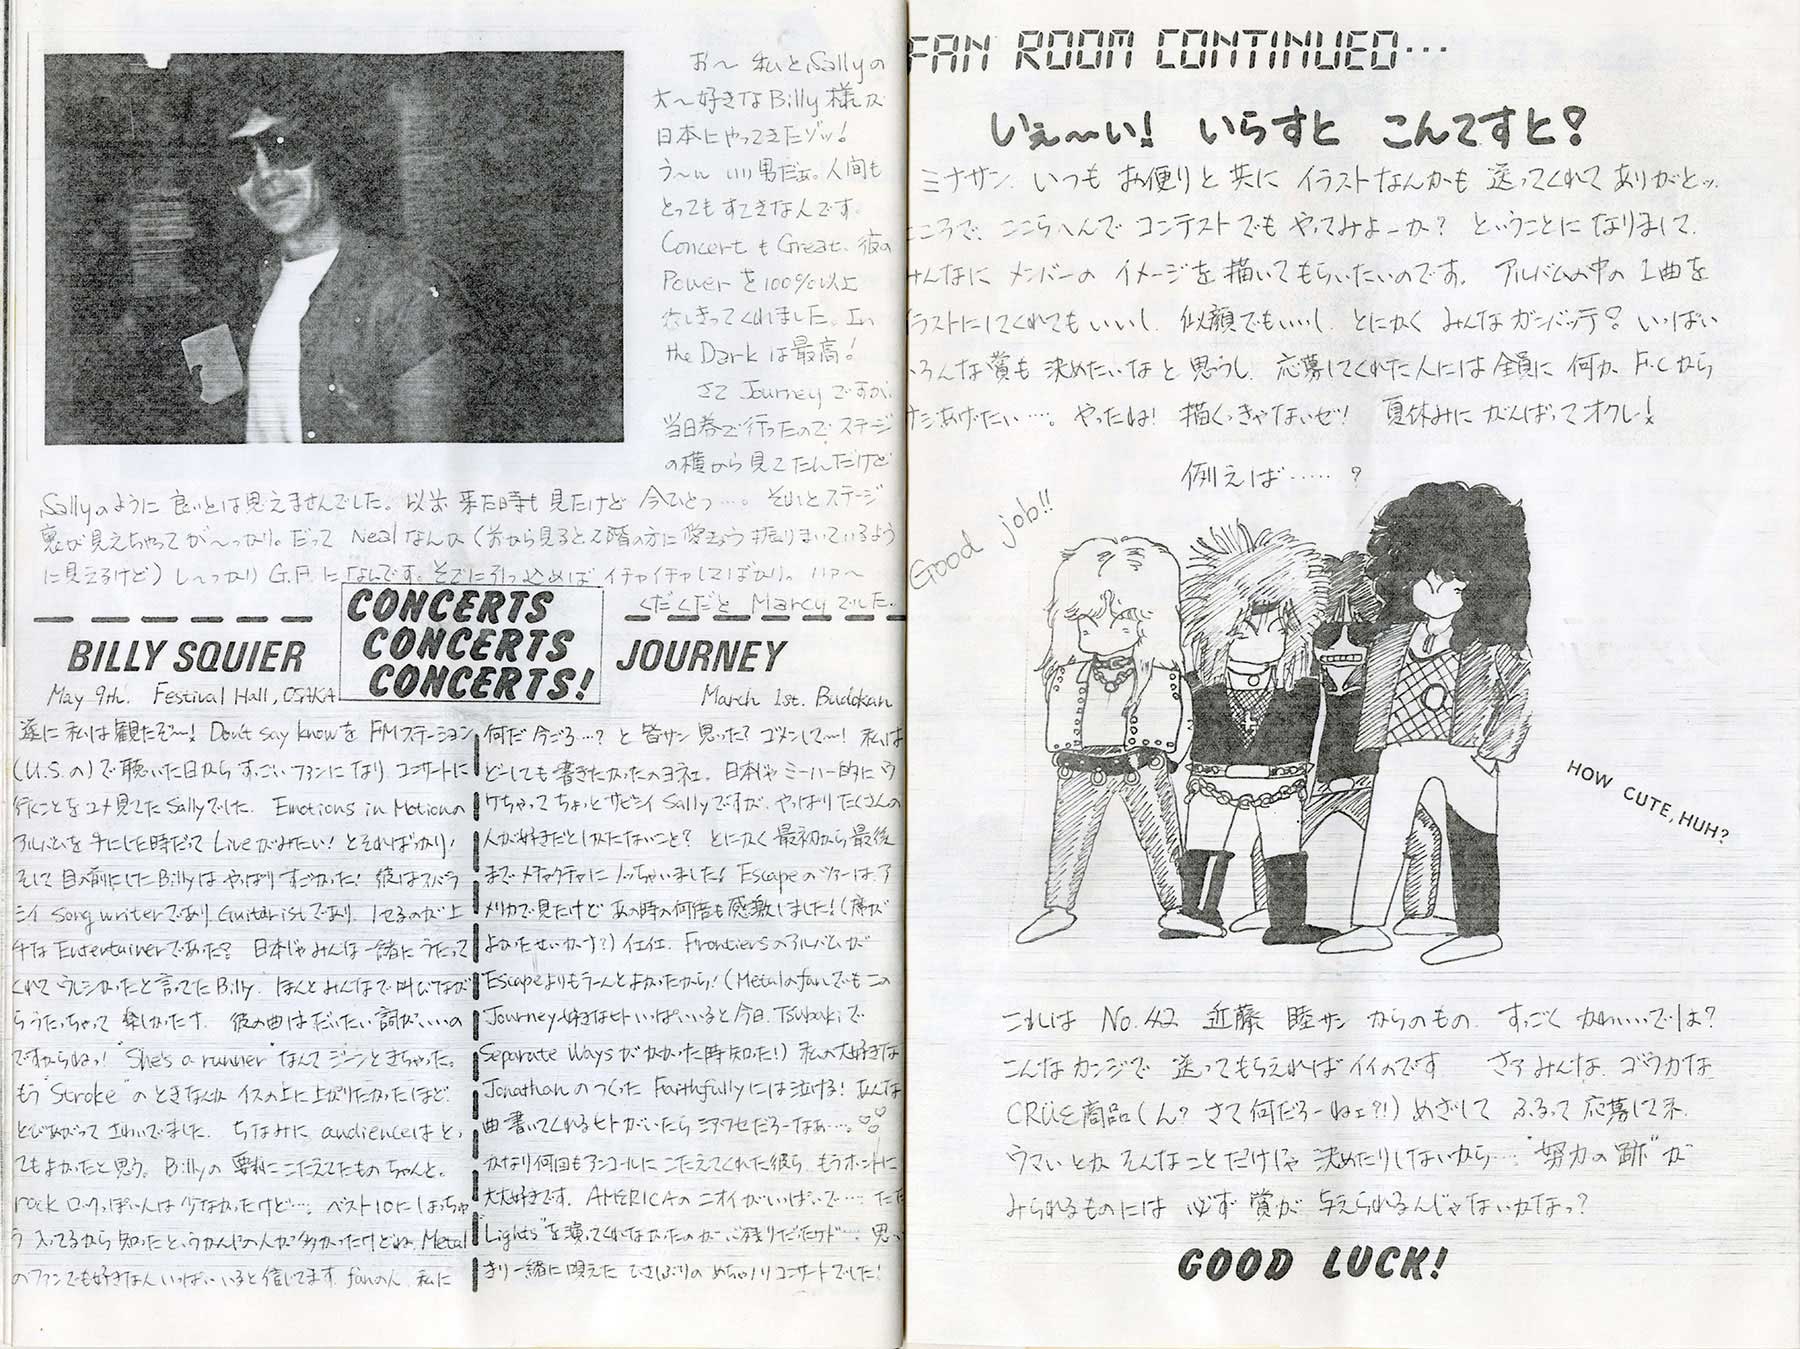 お〜 私と、Sallyの
大〜好きなBilly様が
日本にやってきたゾッ!
う〜ん いい男だぁ。人間も
とってもすてきなんです。
Concert も Great、彼の
Power を100%以上
出しきってくれました。In
the Dark は最高!
さて Journey ですが、
当日券で行ったので ステージ
の横から見てたんだけど
Sallyのように 良いとは思えませんでした。以前 来た時も 見たけど 今ひとつ…。それとステージ
裏が見えちゃって が〜っかり。だって Neal なんか(前から見ると2階の方に愛きょう振りまいているよう
に見えるけど) し〜っかり G.F. に
イチャイチャしてばかり。ハァ〜
くだくだと Marcyでした。
CONCERTS
CONCERTS
CONCERTS!
BILLY SQUIER
May 9th. Festival Hall, OSAKA
遂に私は観たぞ〜! Don't say know を FMステーション
(U.S.の)で 聴いた日から すっごいファンになり コンサートに
行くことを ユメ見てた Sallyでした. Emotions in Motionの
アルバムを 手にした時だって Live がみたい! とそればっかり!
そして 目の前にした Billyは やっぱり すごかった! 彼はスバラ
シイ Song writerであり Guitaristであり
チな Entertainerであった? 日本じゃみんな一緒にうたって
くれて ウレシかったと言ってた Billy. ほんと みんなで叫びなが
らうたっちゃって 楽しかったす. 彼の曲は だいたい 詞がいいの
ですからねっ! "She's a runner" なんて ジーンときちゃった。
もう "Stroke" の ときなんか イスの上に上がりたかったほど
とびあがって さわいでました. ちなみに audienceは とっ
てもよかったと思う。Billyの 要求に こたえてたもの ちゃんと。
rock ロックっぽい人は 少なかったけど…. ベスト10に しょっちゅ
う 入ってるから 知ったというかんじの人が多かったけどね. Metal
のファンでも好きな人 いっぱい いると信じてます. 私に
JOURNEY
March 1st. Budokan
何だ 今ごろ…? と 皆サン 思った? ゴメンして〜! 私は
どーしても 書きたかったのヨネェ. 日本じゃ ミーハー的に ウ
ケちゃって ちょっと サビシイ Sallyですが、やっぱり たくさんの
人が好きだと しかたないこと? とにかく 最初から 最後
まで メチャクチャに ノっちゃいました! Escape のツアーは、ア
メリカで見たけど あの時の何倍も 感激しました! (席が
よかったせいかナ?) Frontiersのアルバムが
Escapeよりもうーんと よかったから! (Metalのfanでも この
Journey 好きなヒト いっぱいいると 今日、Tsubakiで
Separate Ways が かかった時 知った!) 私の大好きな
Jonathan の つくった Faithfully には 泣ける! あんな
曲 書いてくれるヒトが いたら シアワセだろーなぁ….♡♡♡
かなり何回もアンコールに こたえてくれた彼ら. もうホントに
大大好きです. AMERICAの ニオイがいっぱいで… ただ
"Lights"を演ってくれなかったのが 心残りだったケド… 思い
きり一緒に唄えた ひさしぶりの めちゃノリ コンサートでした!
FAN ROOM CONTINUED…
いぇ〜い! いらすと こんてすと!
ミナサン、いつも お便りと共に イラストなんかも 送ってくれて ありがとッ.
ころで、ここらへんで コンテストでも やってみよーか? ということに なりまして、
みんなに メンバーの イメージを 描いてもらいたいのです. アルバムの中の 1曲を
イラストにしてくれてもいいし、似顔でもいいし、とにかく みんな ガンバッテ! いっぱい
いろんな賞も 決めたいなと思うし、応募してくれた人には 全員に 何か F.Cから
あげたい…。やったね! 描くっきゃないぜ! 夏休みに がんばって オクレ!
例えば……?
Good job!!
HOW CUTE, HUH?
これは No.42 近藤 睦サン からのもの. すっごく かわいいでしょ?
こんな カンジで 送ってもらえれば イイのです. さァ みんな、ゴウカな
CRÜE商品(ん? さて何だろーねェ?!) めざして ふるって 応募してネ.
ウマい とか そんなこと だけじゃ 決めたりしないから…. "努力の跡" が
みられるものには 必ず 賞が 与えられるんじゃないかなっ?
GOOD LUCK!